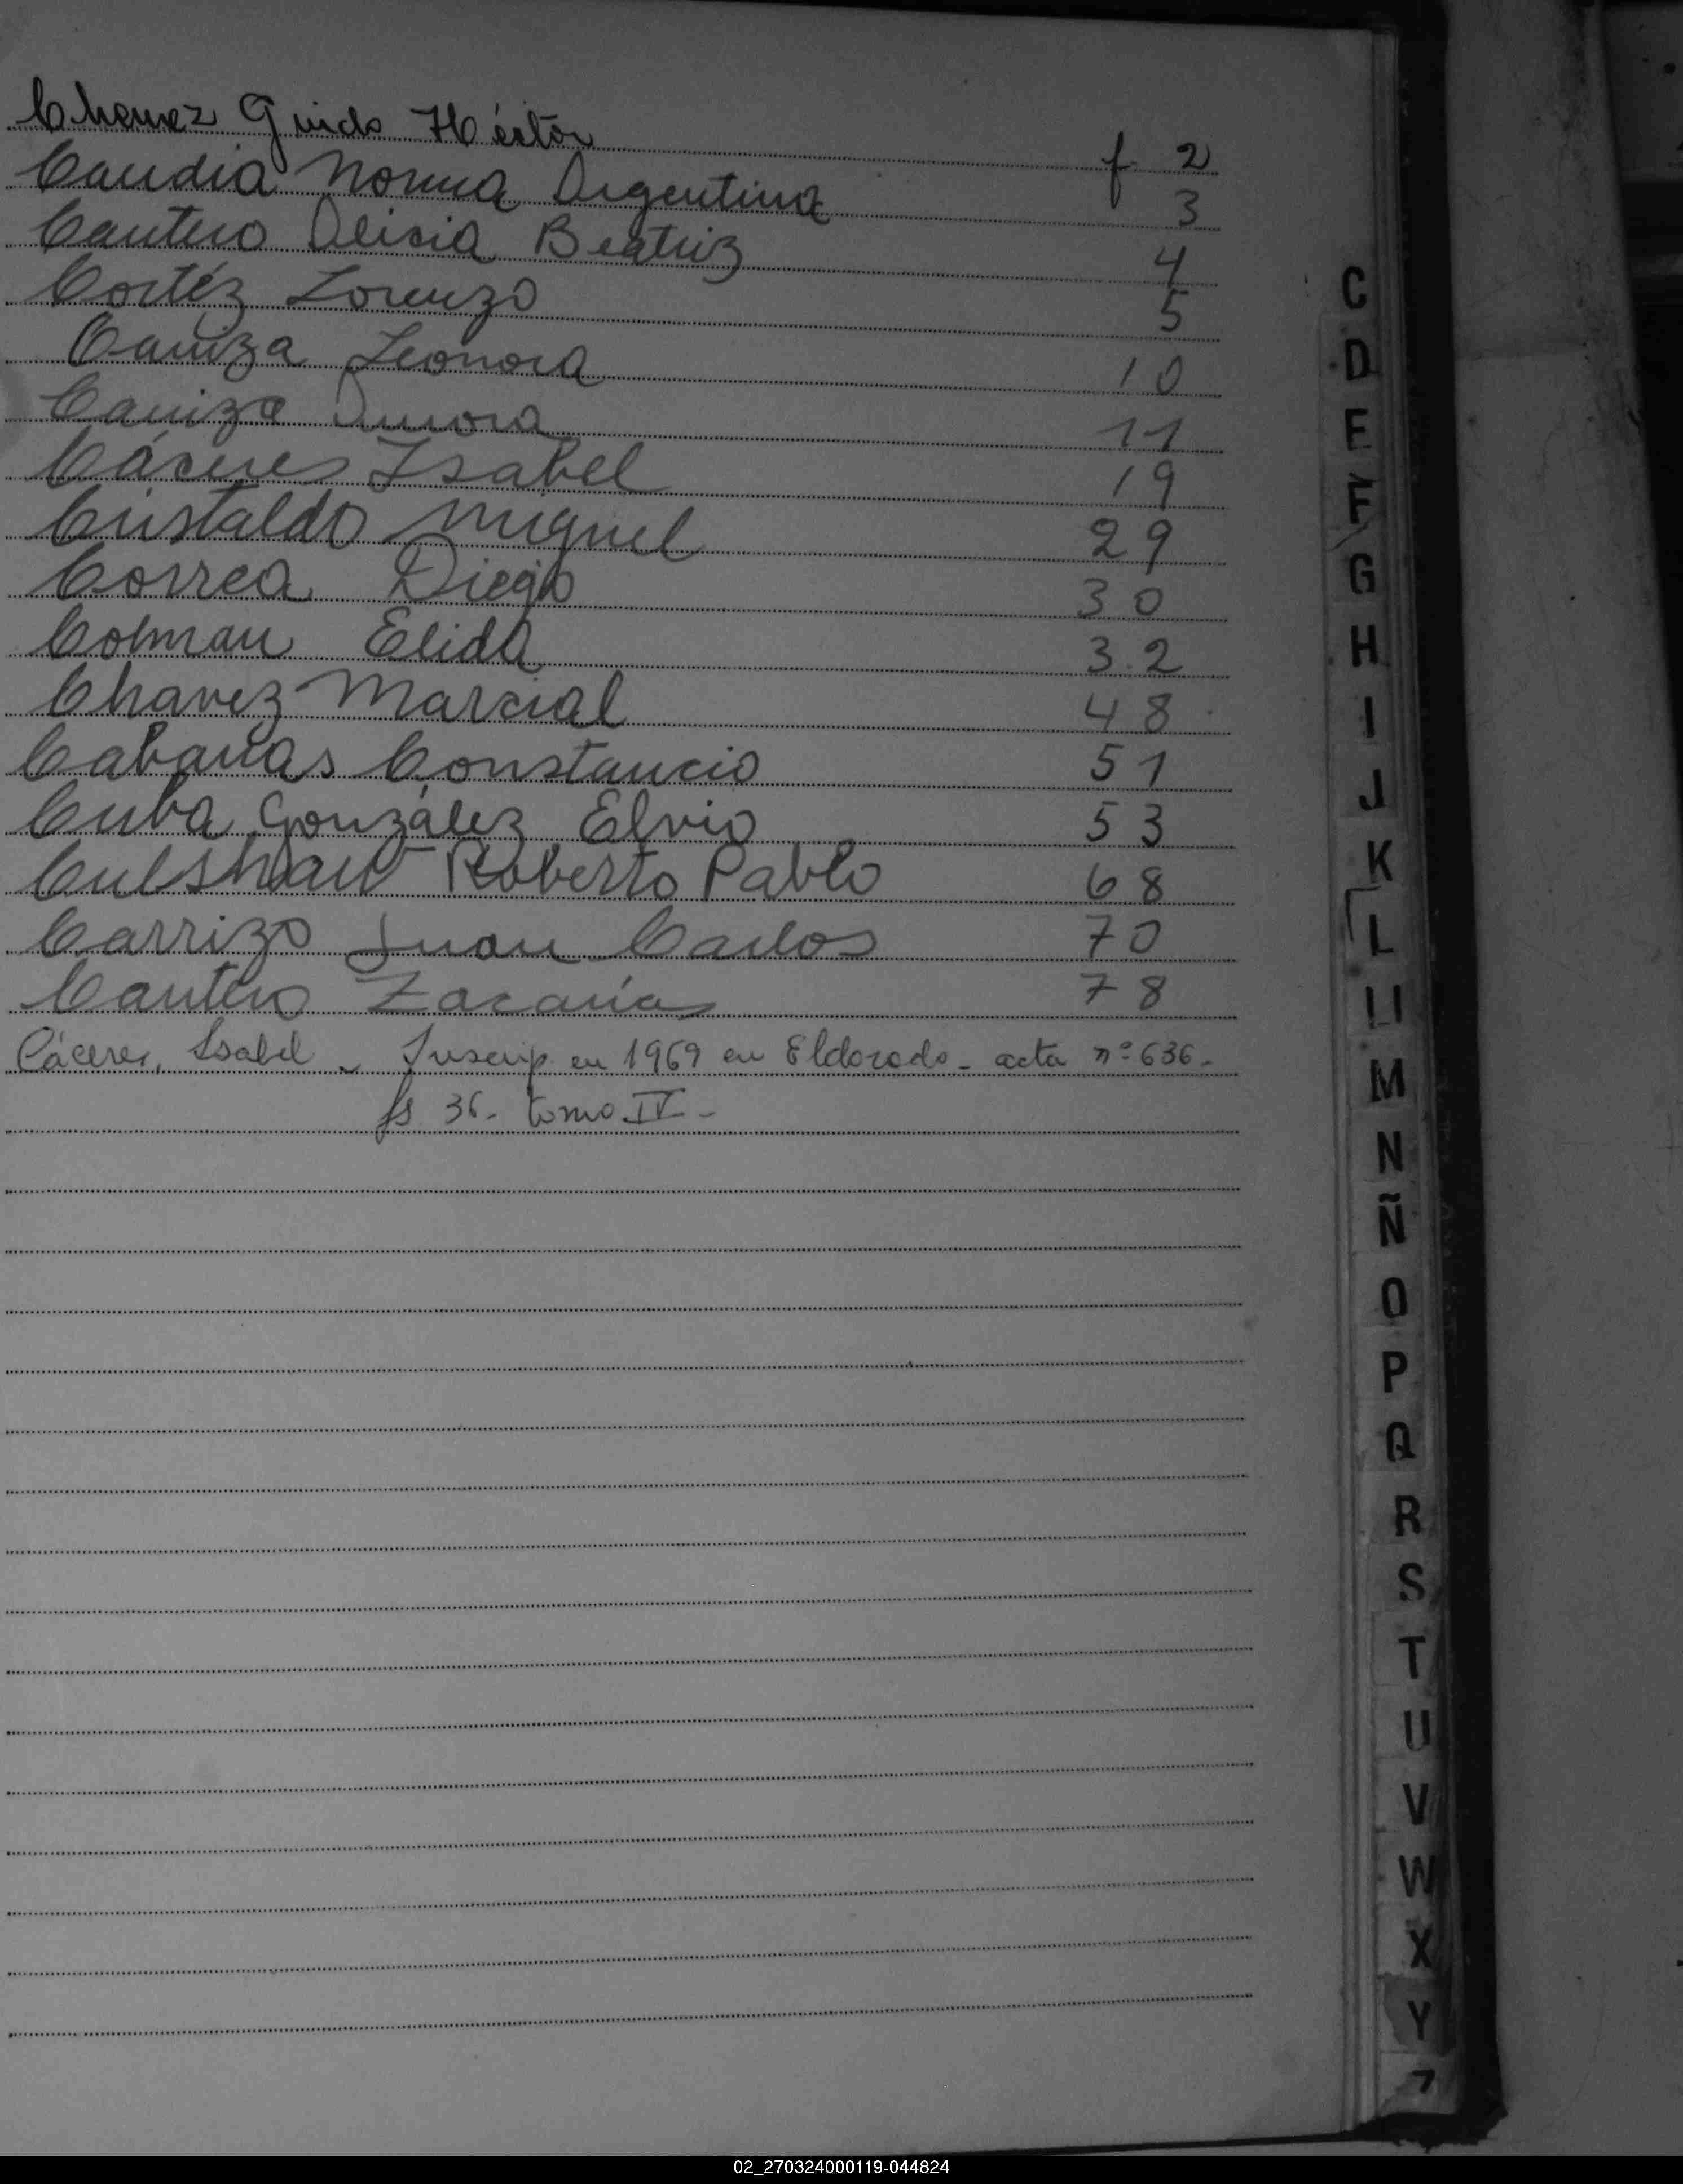 Guido Héctor f. 2
Candia Norma Argentina 3
Cantero Alicia Beatriz 4
Cortéz Lorenzo 5
Caniza Leonora 10
Caniza Aurora 11
Cáceres Isabel 19
Cristaldo Miguel 29
Correa Diego 30
Colman Elida 32
Chavez Marcial 48
Cabañas Constancio 51
Cuba González Elvio 53
Culshaw Roberto Pablo 68
Carrizo Juan Carlos 70
Cantero Zacarías 78
Cáceres, Isabel - Inscrip en 1969 en Eldorado - acta nº 636 -
fs 36 - tomo IV -
C
D
E
F
G
H
I
J
K
L
Ll
M
N
Ñ
O
P
Q
R
S
T
U
V
W
X
Y
Z
02_270324000119-044824